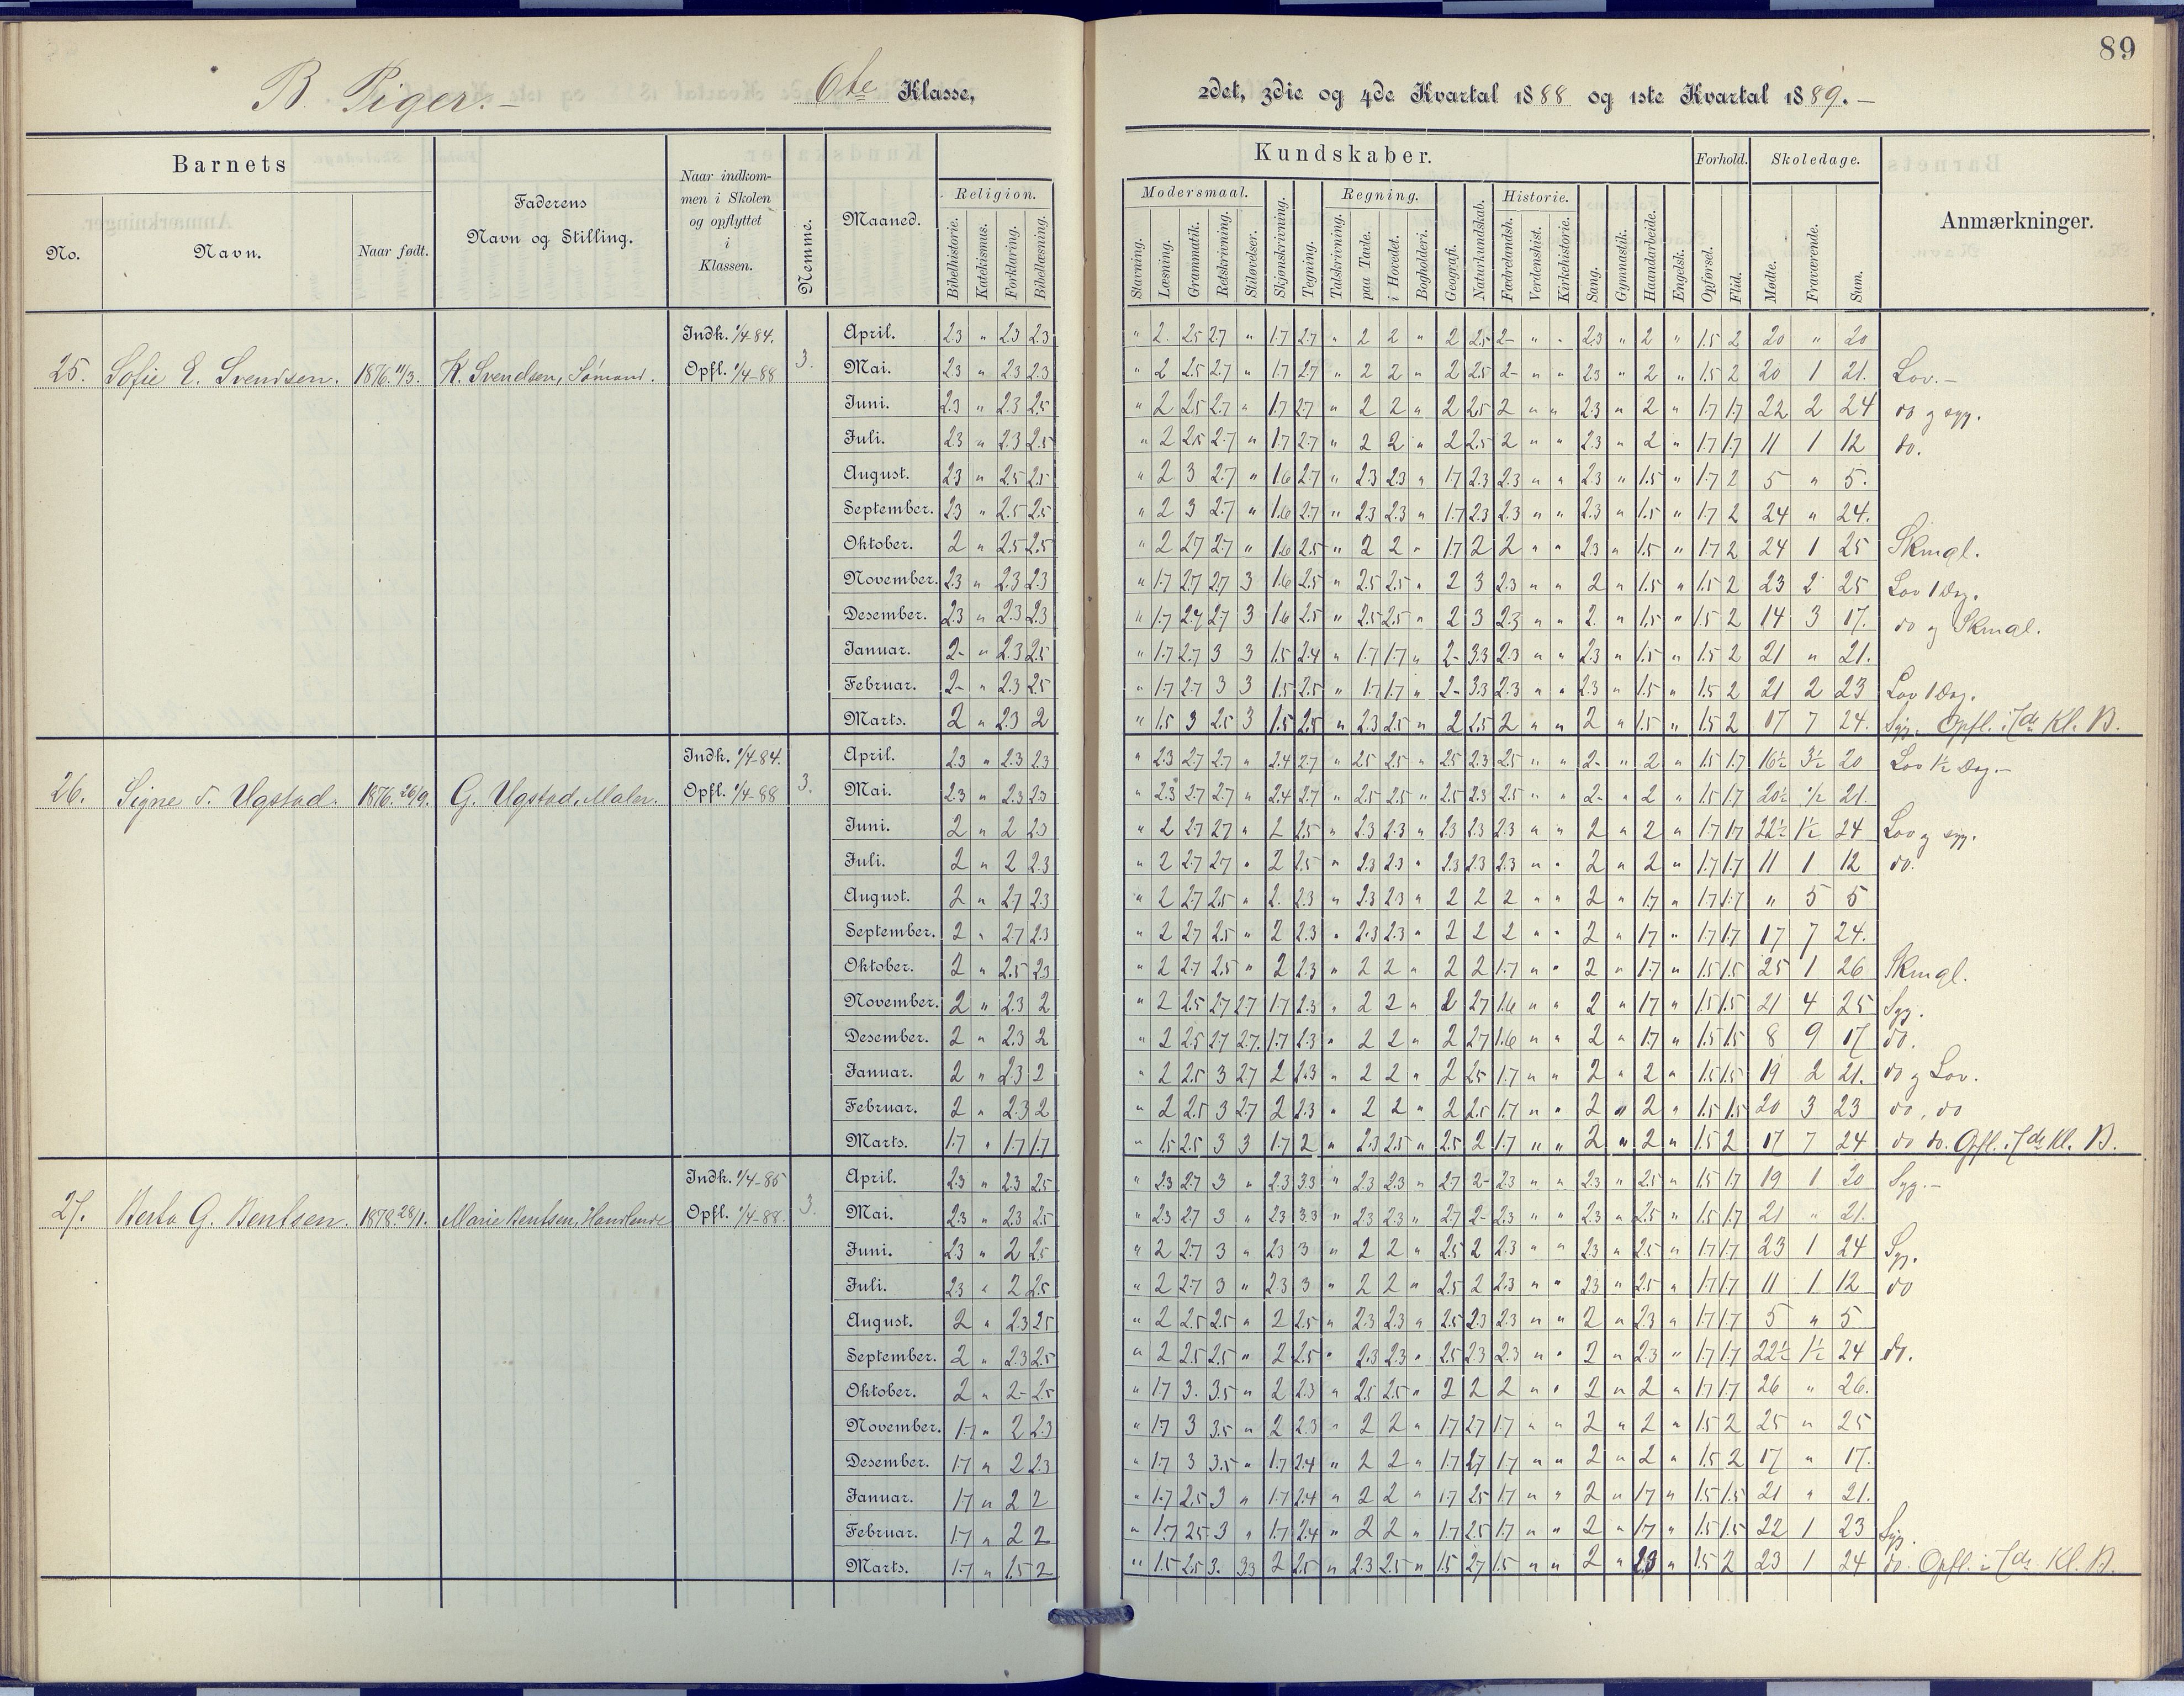 89
B. Piger.- 6te Klasse, 2det, 3die og 4de Kvartal 1888 og 1ste Kvartal 1889.-
Barnets
No. Navn. Naar født.
Faderens Navn og Stilling.
Naar indkommen i Skolen og opflyttet i Klassen.
Nemme.
Maaned.
Religion.
Bibelhistorie. Katekismus. Forklaring. Bibellæsning.
Kundskaber.
Modersmaal.
Stavning. Læsning. Grammatik. Retskrivning. Stiløvelser.
Skjønskrivning. Tegning.
Regning.
Talskrivning. paa Tavle. i Hovedet. Bogholderi.
Geografi. Naturkundskab.
Historie.
Fædrelandsh. Verdenshist. Kirkehistorie.
Sang. Gymnastik. Haandarbeide. Engelsk.
Forhold.
Opførsel. Flid.
Skoledage.
Mødte. Fraværende. Sum.
Anmærkninger.
25. Sofie E. Svendsen. 1876. 11/3. K. Svendsen, Sømand. Indk. 1/4-84. Opfl. 1/4-88 3.
April. 2.3 " 2.3 2.3 " 2. 2.5 2.7 " 1.7 2.7 " 2 2 " 2 2.5 2- " " 2.3 " 2 " 1.5 2 20 " 20
Mai. 2.3 " 2.3 2.3 " 2 2.5 2.7 " 1.7 2.7 " 2 2 " 2 2.5 2- " " 2.3 " 2 " 1.5 2 20 1 21. Lov.-
Juni. 2.3 " 2.3 2.5 " 2 2.5 2.7 " 1.7 2.7 " 2 2 " 2 2.5 2 " " 2.3 " 2 " 1.7 1.7 22 2 24 do og syg.
Juli. 2.3 " 2.3 2.5 " 2 2.5 2.7 " 1.7 2.7 " 2 2 " 2 2.5 2 " " 2.3 " 2 " 1.7 1.7 11 1 12 do.
August. 2.3 " 2.5 2.5 " 2 3 2.7 " 1.6 2.7 " 2.3 2.3 " 1.7 2.3 2.3 " " 2.3 " 1.5 " 1.7 2 5 " 5.
September. 2.3 " 2.5 2.5 " 2 3 2.7 " 1.6 2.7 " 2.3 2.3 " 1.7 2.3 2.3 " " 2.3 " 1.5 " 1.7 2 24 " 24.
Oktober. 2 " 2.5 2.5 " 2 2.7 2.7 " 1.6 2.5 " 2 2 " 1.7 2 2 " " 2.3 " 1.5 " 1.7 2 24 1 25 Skmgl.
November. 2.3 " 2.3 2.3 " 1.7 2.7 2.7 3 1.6 2.5 " 2.5 2.5 " 2 3 2.3 " " 2 " 1.5 " 1.5 2 23 2 25 Lov 1 Dag.
Desember. 2.3 " 2.3 2.3 " 1.7 2.7 2.7 3 1.6 2.5 " 2.5 2.5 " 2 3 2.3 " " 2. " 1.5 " 1.5 2 14 3 17. do og Skmgl.
Januar. 2- " 2.3 2.5 " 1.7 2.7 3 3 1.5 2.4 " 1.7 1.7 " 2- 3.3 2.3 " " 2.3 " 1.5 " 1.5 2 21 " 21.
Februar. 2- " 2.3 2.5 " 1.7 2.7 3 3 1.5 2.5 " 1.7 1.7 " 2- 3.3 2.3 " " 2.3 " 1.5 " 1.5 2 21 2 23 Lov 1 Dag.
Marts. 2 " 2.3 2 " 1.5 3 2.5 3 1.5 2.5 " 2.3 2.5 " 2 2.5 2 " " 2 " 1.5 " 1.5 2 17 7 24. Syg. Opfl. i 7de Kl. B.
26. Signe S. Ugstad. 1876. 26/9. G. Ugstad, Maler. Indk. 1/4-84. Opfl. 1/4-88 3.
April. 2.3 " 2.3 2.3 " 2.3 2.7 2.7 " 2.4 2.7 " 2.5 2.5 " 2.5 2.3 2.5 " " 2- " 2 " 1.5 1.7 16½ 3½ 20 Lov 1½ Dag.-
Mai. 2.3 " 2.3 2.3 " 2.3 2.7 2.7 " 2.4 2.7 " 2.5 2.5 " 2.5 2.3 2.5 " " 2- " 2 " 1.5 1.7 20½ ½ 21.
Juni. 2 " 2 2.3 " 2 2.7 2.7 " 2 2.5 " 2.3 2.3 " 2.3 2.3 2.3 " " 2 " 2 " 1.7 1.7 22½ 1½ 24 Lov og syg.
Juli. 2 " 2 2.3 " 2 2.7 2.7 " 2 2.5 " 2.3 2.3 " 2.3 2.3 2.3 " " 2 " 2 " 1.7 1.7 11 1 12 do.
August. 2 " 2.7 2.3 " 2 2.7 2.5 " 2. 2.3 " 2.3 2.3 " 2 2 2 " " 2 " 1.7 " 1.7 1.7 " 5 5
September. 2 " 2.7 2.3 " 2 2.7 2.5 " 2 2.3 " 2.3 2.3 " 2 2 2 " " 2 " 1.7 " 1.7 1.7 17 7 24.
Oktober. 2 " 2.5 2.3 " 2 2.7 2.5 " 2 2.3 " 2 2 " 2 2 1.7 " " 2 " 1.7 " 1.5 1.5 25 1 26 Skmgl.
November. 2 " 2.3 2 " 2 2.5 2.7 2.7 1.7 2.3 " 2 2 " 2 2.7 1.6 " " 2 " 1.7 " 1.5 1.5 21 4 25 Syg.
Desember. 2 " 2.3 2 " 2 2.5 2.7 2.7. 1.7 2.3 " 2 2 " 2 2.7 1.6 " " 2 " 1.7 " 1.5 1.5 8 9 17 do.
Januar. 2 " 2.3 2 " 2 2.5 3 2.7 2 2.3 " 2 2 " 2 2.5 1.7 " " 2 " 2 " 1.5 1.5 19 2 21. do og Lov.
Februar. 2 " 2.3 2 " 2 2.5 3 2.7 2 2.3 " 2 2 " 2 2.5 1.7 " " 2 " 2 " 1.5 1.5 20 3 23 do. do
Marts. 1.7 " 1.7 1.7 " 1.5 2.5 3 3 1.7 2 " 2.3 2.5 " 2.5 2 1.7 " " 2 " 2 " 1.5 2 17 7 24 do do. Opfl. i 7de Kl. B.
27. Berta G. Bentsen. 1878. 28/1. Marie Bentsen, Handlende Indk. 1/4-85 Opfl. 1/4-88. 3.
April. 2.3 " 2.3 2.5 " 2.3 2.7 3 " 2.3 3.3 " 2.3 2.3 " 2.7 2- 2.3 " " 2.3 " 2.5 " 1.5 1.7 19 1 20 Syg.-
Mai. 2.3 " 2.3 2.5 " 2.3 2.7 3 " 2.3 3.3 " 2.3 2.3 " 2.7 2- 2.3 " " 2.3 " 2.5 " 1.5 1.7 21 " 21.
Juni. 2.3 " 2 2.5 " 2 2.7 3 " 2.3 3 " 2 2 " 2.5 2 2.3 " " 2.3 " 2.5 " 1.7 1.7 23 1 24 Syg.
Juli. 2.3 " 2 2.5 " 2 2.7 3 " 2.3 3 " 2 2 " 2.5 2 2.3 " " 2.3 " 2.5 " 1.7 1.7 11 1 12 do
August. 2 " 2.3 2.5 " 2 2.5 2.5 " 2 2.5 " 2.3 2.3 " 2.5 2.3 2.3 " " 2 " 2.3 " 1.7 1.7 5 " 5
September. 2 " 2.3 2.5 " 2 2.5 2.5 " 2 2.5 " 2.3 2.3 " 2.5 2.3 2.3 " " 2 " 2.3 " 1.7 1.7 22½ 1½ 24 do.
Oktober. 2 " 2- 2.5 " 1.7 3. 3.5 " 2 2.3 " 2.5 2.5 " 2 2 2 " " 2 " 2 " 1.7 1.7 26 " 26.
November. 1.7 " 2 2.3 " 1.7 3 3.5 " 2 2.3 " 2 2 " 1.7 2.7 1.7 " " 2 " 2 " 1.5 2 25 " 25
Desember. 1.7 " 2 2.3 " 1.7 3 3.5 " 1.7 2.4 " 2 2 " 1.7 2.7 1.7 " " 2 " 2 " 1.5 2 17 " 17.
Januar. 1.7 " 2 2 " 1.7 2.5 3 " 1.7 2.4 " 2 2 " 1.7 2.5 1.7 " " 2 " 1.7 " 1.5 1.5 21 " 21.
Februar. 1.7 " 2 2 " 1.7 2.5 3 " 1.7 2.4 " 2 2 " 1.7 2.5 1.7 " " 2 " 1.7 " 1.5 1.5 22 1 23 Syg.
Marts. 1.7 " 1.5 2 " 1.5 2.5 3. 3.3 2 2.5 " 2.3 2.5 " 1.5 2.7 1.5 " " 2 " 2.3 " 1.5 2 23 1 24 do. Opfl. i 7de Kl. B.